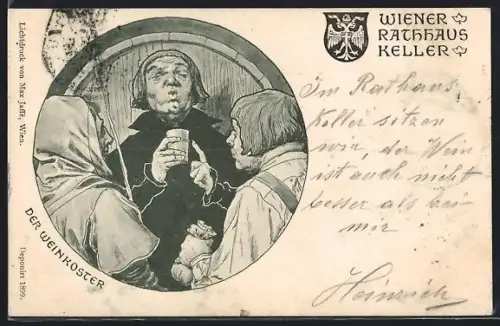 WIENER
RATHHAUS
KELLER
Im Rathaus
Keller sitzen
wir, der Wein
ist auch nicht
besser als bei
mir
Heinrich
DER WEINKOSTER
Lichtdruck von Max Jaffé, Wien.
Deponirt 1899.